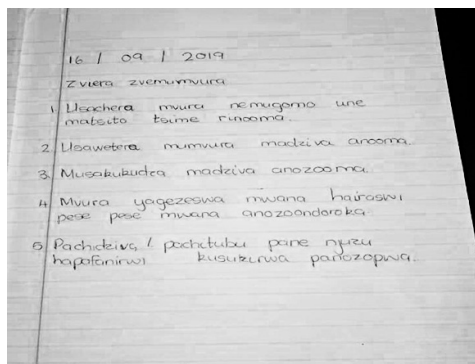 16 / 09 / 2019
Zviera zvemumvura
1 Usachera mvura nemugomo une
matsito tsime rinooma.
2 Usawetera mumvura madziva anooma
3 Musakukudza madziva anozooma.
4 Mvura yagezeswa mwana hairaswi
pese pese mwana anozoondoroka.
5 Pachidziva / pachitubu pane njuzu
hapofanirwi kusukirwa panozopwa.